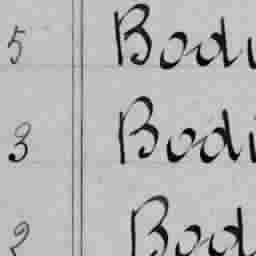 5 Bodi
3 Bodi
2 Bod